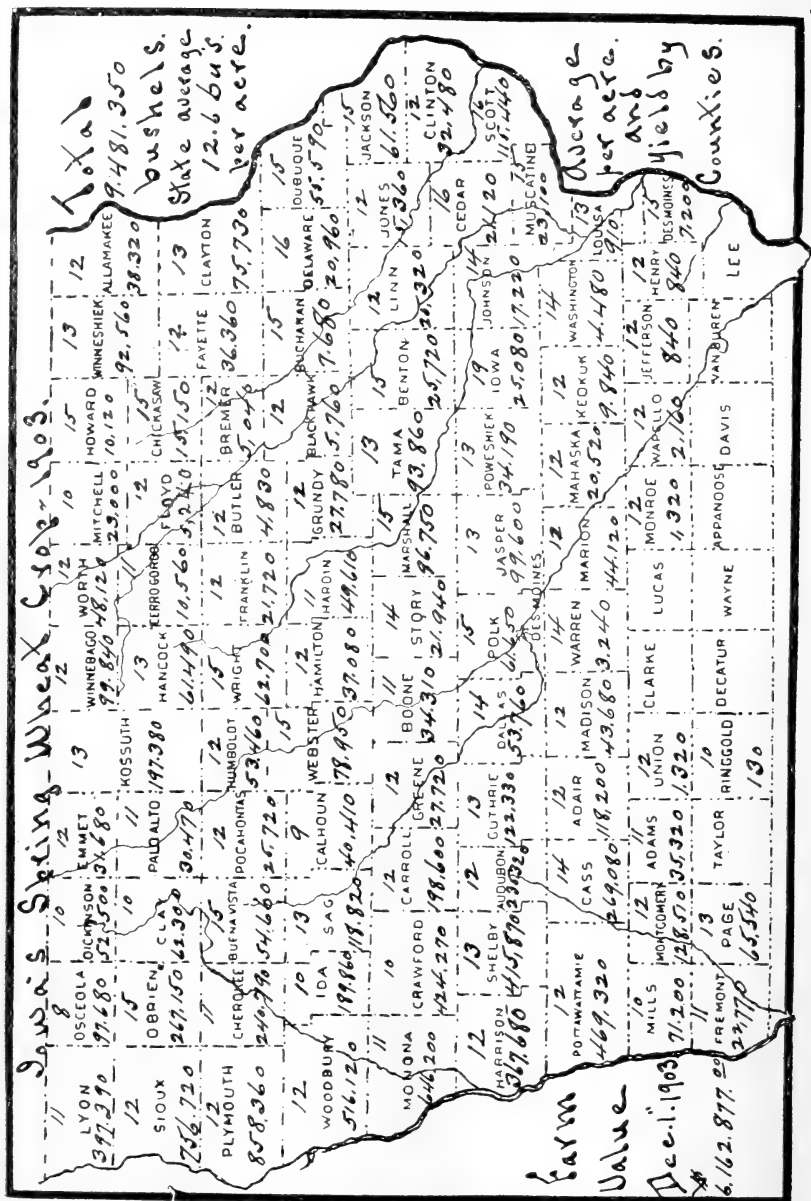 Iowa's Spring Wheat Crop - 1903.
Total
9.481.350
bushels.
State average
12.6 bu's.
per acre.
11
LYON
397.390
8
OSCEOLA
97.680
10
DICKINSON
52.500
12
EMMET
31.680
13
KOSSUTH
197.380
12
WINNEBAGO
99.840
12
WORTH
48.120
10
MITCHELL
23.000
15
HOWARD
10.120
13
WINNESHIEK
92.560
12
ALLAMAKEE
38.320
12
SIOUX
756.720
15
OBRIEN
267.150
10
CLAY
62.300
11
PALO ALTO
30.470
13
HANCOCK
61.490
11
CERRO GORDO
10.560
12
FLOYD
5,240
15
CHICKASAW
15.150
12
FAYETTE
36.360
13
CLAYTON
75,730
12
PLYMOUTH
858.360
17
CHEROKEE
240.790
15
BUENA VISTA
54.600
12
POCAHONTAS
25.720
12
HUMBOLDT
53.460
15
WRIGHT
62.700
12
FRANKLIN
21.720
12
BUTLER
4.830
12
BREMER
5.040
12
WOODBURY
516.120
10
IDA
189.860
13
SAC
118.820
9
CALHOUN
40.410
15
WEBSTER
78.950
12
HAMILTON
37.080
11
HARDIN
49.610
12
GRUNDY
27.780
12
BLACKHAWK
5.760
15
BUCHANAN
7.680
16
DELAWARE
20,960
15
DUBUQUE
55.590
11
MONONA
646.200
10
CRAWFORD
424.270
12
CARROLL
198.600
12
GREENE
27.720
11
BOONE
34.310
14
STORY
21.940
15
MARSHALL
96.750
13
TAMA
93.860
15
BENTON
25.720
12
LINN
20,320
12
JONES
5.360
15
JACKSON
61.560
12
CLINTON
32.480
12
HARRISON
367.680
13
SHELBY
415.870
12
AUDUBON
230.320
13
GUTHRIE
122.330
14
DALLAS
53.760
15
POLK
61.650
DES MOINES
13
JASPER
99.600
13
POWESHIEK
34.190
19
IOWA
25.080
14
JOHNSON
17.220
16
CEDAR
21.120
16
SCOTT
115.440
15
MUSCATINE
23,100
12
POTTAWATTAMIE
469.320
14
CASS
269.080
12
ADAIR
118.200
12
MADISON
43.680
14
WARREN
3.240
12
MARION
44.120
12
MAHASKA
20.520
12
KEOKUK
9.840
14
WASHINGTON
4.480
13
LOUISA
910
10
MILLS
71.200
12
MONTGOMERY
128.510
11
ADAMS
35,320
12
UNION
1.320
CLARKE
LUCAS
12
MONROE
1,320
12
WAPELLO
2,160
12
JEFFERSON
840
12
HENRY
840
15
DESMOINES
7.200
11
FREMONT
22,770
13
PAGE
65,540
TAYLOR
10
RINGGOLD
130
DECATUR
WAYNE
APPANOOSE
DAVIS
VAN BUREN
LEE
Farm
Value
Dec. 1. 1903
$
6,162.877.00
Average
per acre.
and
Yield by
Counties.